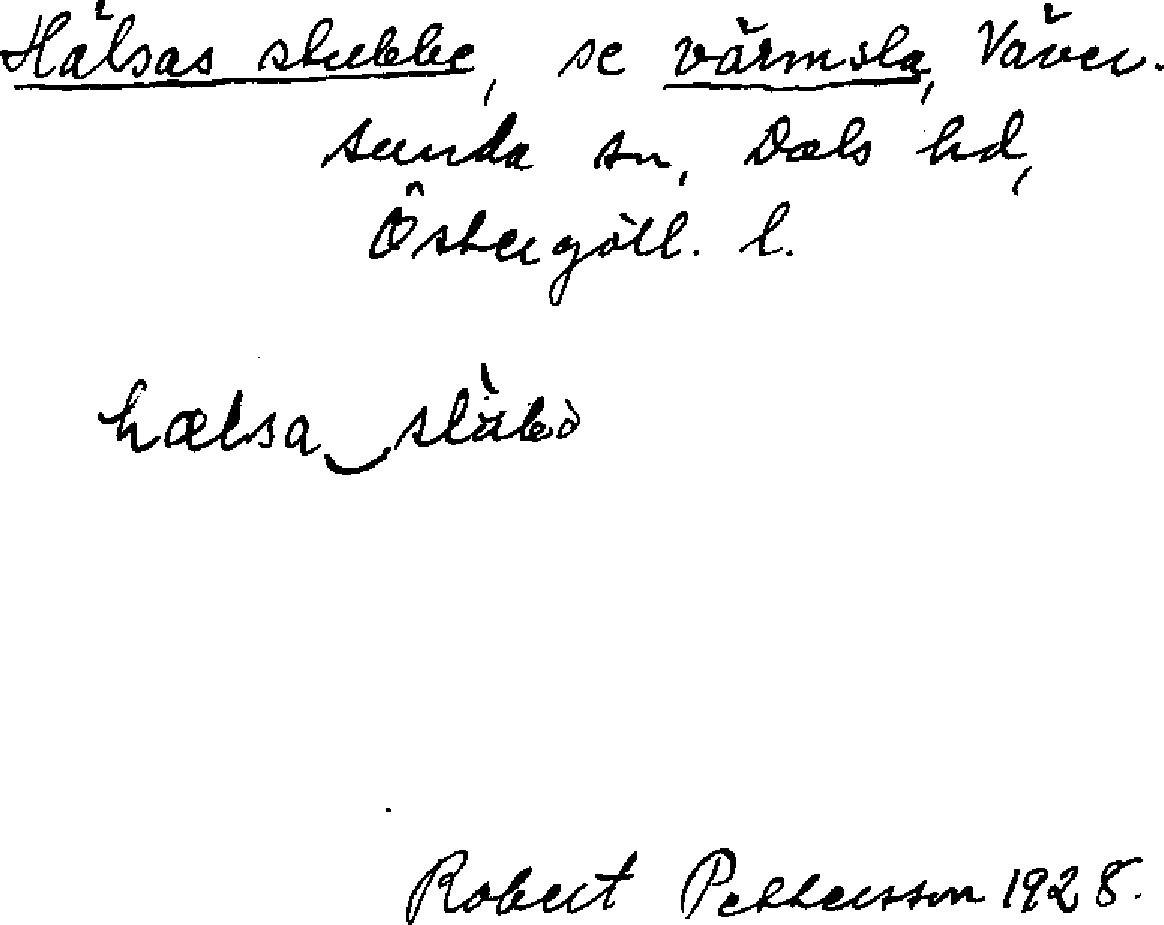 Hälsas stubbe, se värmsla, Väver-
sunda sn, Dals hd,
Östergötl. l.
Robert Pettersson 1928.